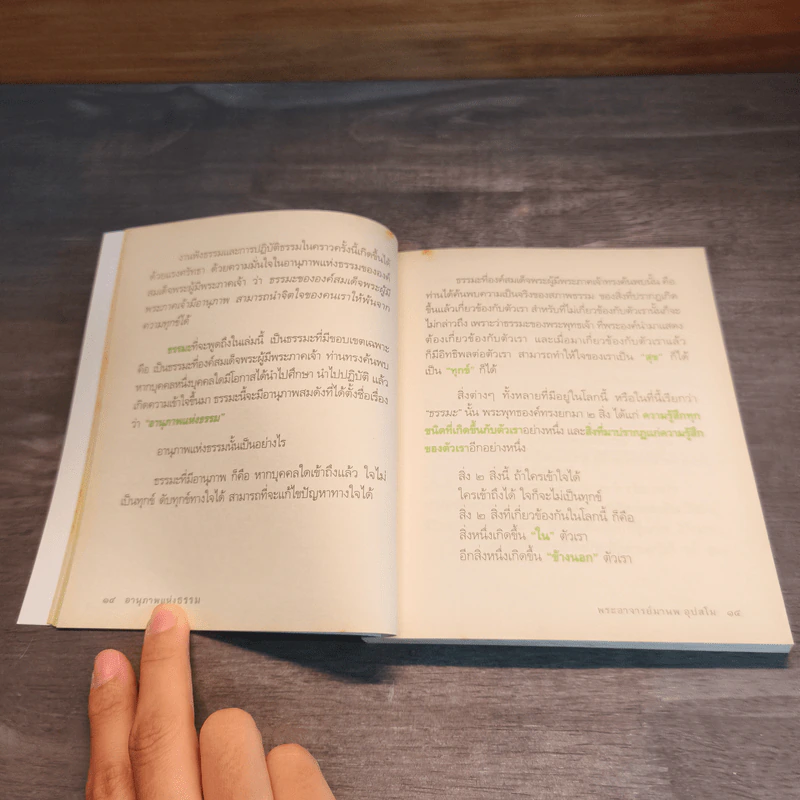 งานฟังธรรมและการปฏิบัติธรรมในคราวครั้งนี้เกิดขึ้นได้
ด้วยแรงศรัทธา ด้วยความมั่นใจในอานุภาพแห่งธรรมขององค์
สมเด็จพระผู้มีพระภาคเจ้า ว่า ธรรมะขององค์สมเด็จพระผู้มี
พระภาคเจ้ามีอานุภาพ สามารถนำจิตใจของคนเราให้พ้นจาก
ความทุกข์ได้
ธรรมะที่จะพูดถึงในเล่มนี้ เป็นธรรมะที่มีขอบเขตเฉพาะ
คือ เป็นธรรมะที่องค์สมเด็จพระผู้มีพระภาคเจ้า ท่านทรงค้นพบ
หากบุคคลหนึ่งบุคคลใดมีโอกาสได้นำไปศึกษา นำไปปฏิบัติ แล้ว
เกิดความเข้าใจขึ้นมา ธรรมะนี้จะมีอานุภาพสมดังที่ได้ตั้งชื่อเรื่อง
ว่า "อานุภาพแห่งธรรม"
อานุภาพแห่งธรรมนั้นเป็นอย่างไร
ธรรมะที่มีอานุภาพ ก็คือ หากบุคคลใดเข้าถึงแล้ว ใจไม่
เป็นทุกข์ ดับทุกข์ทางใจได้ สามารถที่จะแก้ไขปัญหาทางใจได้
๑๔ อานุภาพแห่งธรรม
ธรรมะที่องค์สมเด็จพระผู้มีพระภาคเจ้าทรงค้นพบนั้น คือ
ท่านได้ค้นพบความเป็นจริงของสภาพธรรม ของสิ่งที่ปรากฏเกิด
ขึ้นแล้วเกี่ยวข้องกับตัวเรา สำหรับที่ไม่เกี่ยวข้องกับตัวเรานั้นก็จะ
ไม่กล่าวถึง เพราะว่าธรรมะของพระพุทธเจ้า ที่พระองค์นำมาแสดง
ต้องเกี่ยวข้องกับตัวเรา และเมื่อมาเกี่ยวข้องกับตัวเราแล้ว
ก็มีอิทธิพลต่อตัวเรา สามารถทำให้ใจของเราเป็น "สุข" ก็ได้
เป็น "ทุกข์" ก็ได้
สิ่งต่างๆ ทั้งหลายที่มีอยู่ในโลกนี้ หรือในที่นี้เรียกว่า
"ธรรมะ" นั้น พระพุทธองค์ทรงยกมา ๒ สิ่ง ได้แก่ ความรู้สึกทุก
ชนิดที่เกิดขึ้นกับตัวเราอย่างหนึ่ง และสิ่งที่มาปรากฏแก่ความรู้สึก
ของตัวเราอีกอย่างหนึ่ง
สิ่ง ๒ สิ่งนี้ ถ้าใครเข้าใจได้
ใครเข้าถึงได้ ใจก็จะไม่เป็นทุกข์
สิ่ง ๒ สิ่งที่เกี่ยวข้องกันในโลกนี้ ก็คือ
สิ่งหนึ่งเกิดขึ้น "ใน" ตัวเรา
อีกสิ่งหนึ่งเกิดขึ้น "ข้างนอก" ตัวเรา
พระอาจารย์มานพ อุปสโม ๑๕